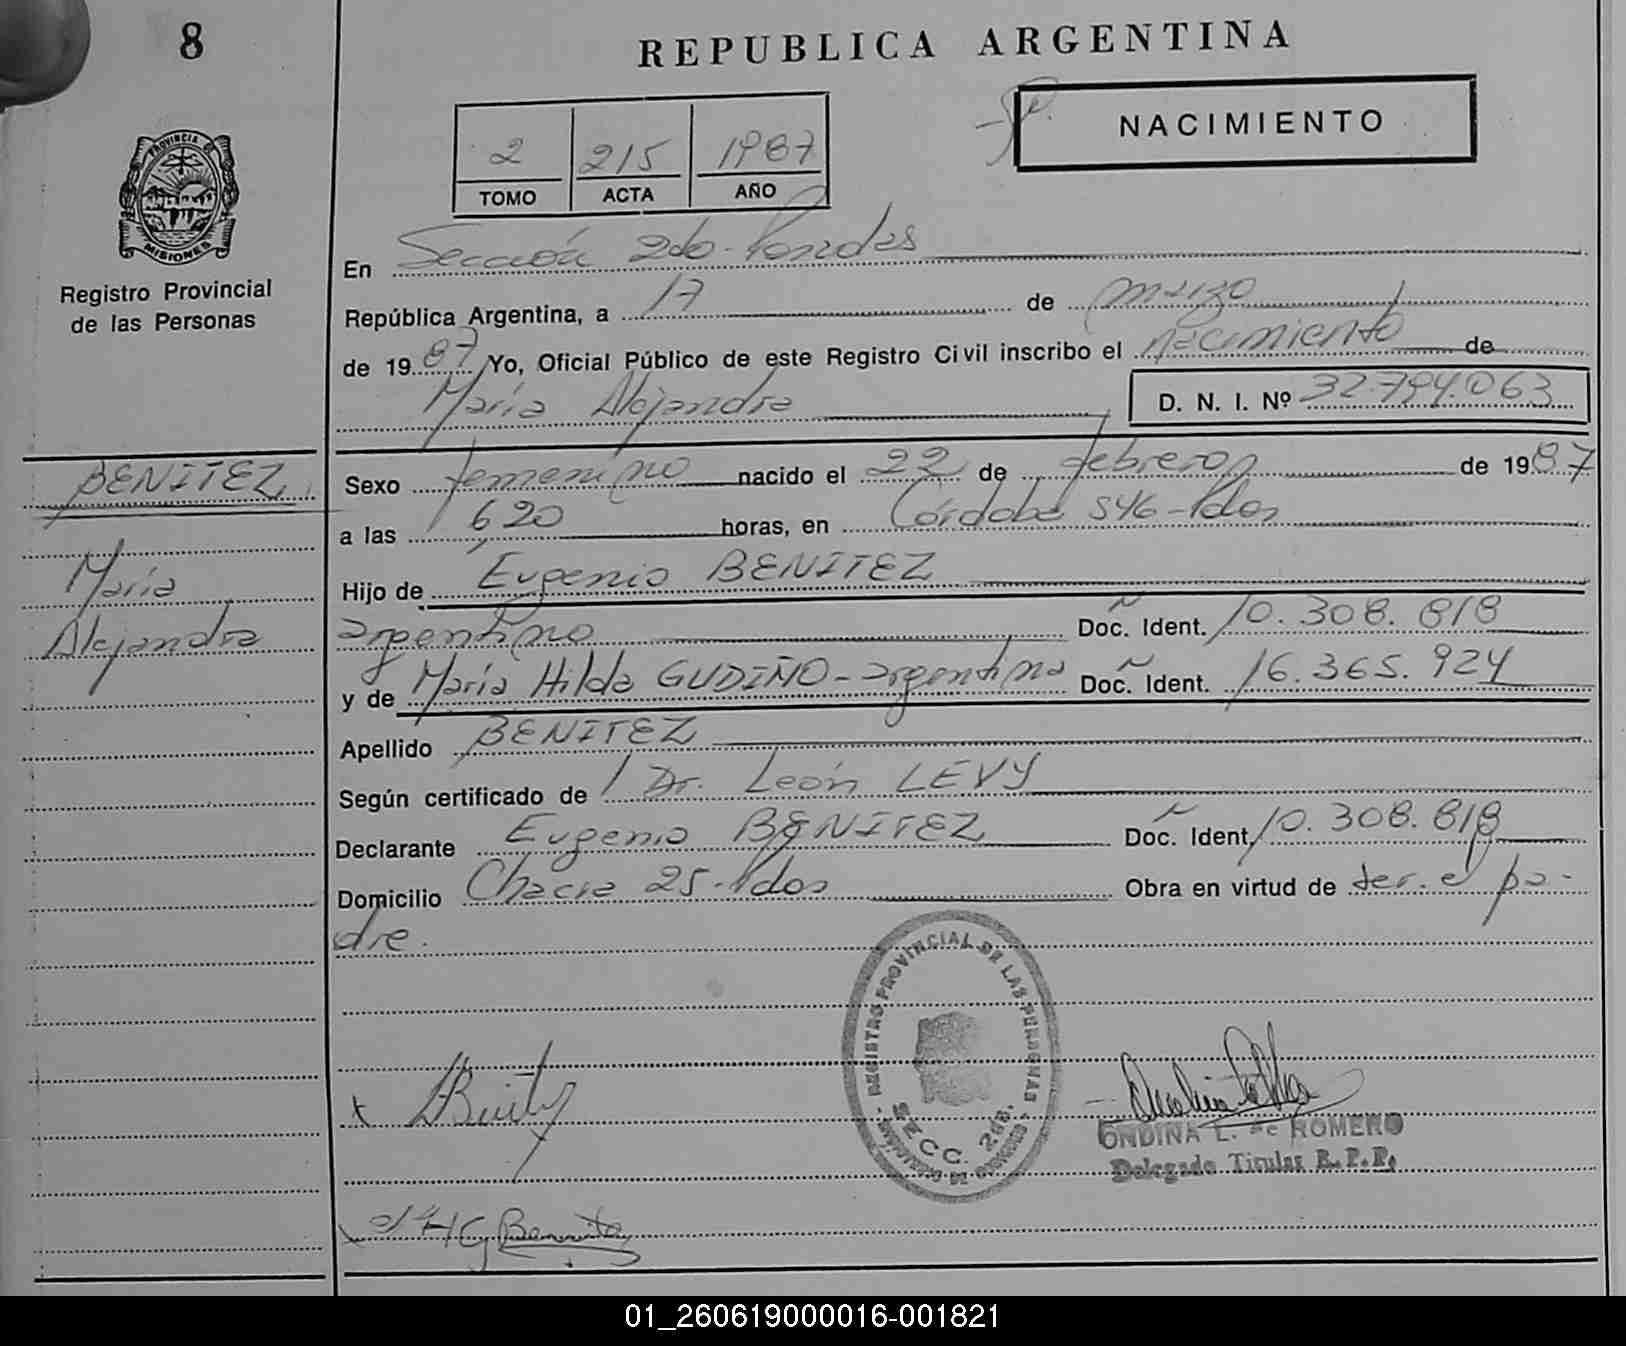 8
REPUBLICA ARGENTINA
NACIMIENTO
2 215 1987
TOMO ACTA AÑO
PROVINCIA DE
MISIONES
Registro Provincial
de las Personas
En Sección 2do - Posadas
República Argentina, a 17 de marzo
de 1987 Yo, Oficial Público de este Registro Civil inscribo el nacimiento de
María Alejandra D. N. I. Nº 32.794.063
BENITEZ
María
Alejandra
Sexo femenino nacido el 22 de febrero de 1987
a las 620 horas, en Córdoba 546 - Pdas
Hijo de Eugenio BENITEZ
argentino Doc. Ident. 10.308.818
y de María Hilda GUDIÑO - argentina Doc. Ident. 16.365.924
Apellido BENITEZ
Según certificado de Dr. León LEVY
Declarante Eugenio BENITEZ Doc. Ident. 10.308.818
Domicilio Chacra 25 - Pdas Obra en virtud de ser el pa-
dre.
REGISTRO PROVINCIAL DE LAS PERSONAS
SECC. 268.
ONDINA L. de ROMERO
Delegado Titular R. P. P.
HG Benitez
01_260619000016-001821